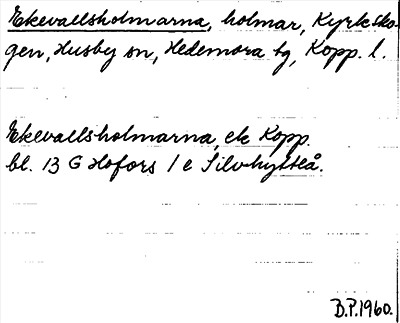 Ekevallsholmarna, holmar, Kyrksko-
gen, Husby sn, Hedemora tg, Kopp. l.
Ekevallsholmarna, ek Kopp.
bl. 13 G Hofors 1 e Silvhytteå.
B.P. 1960.